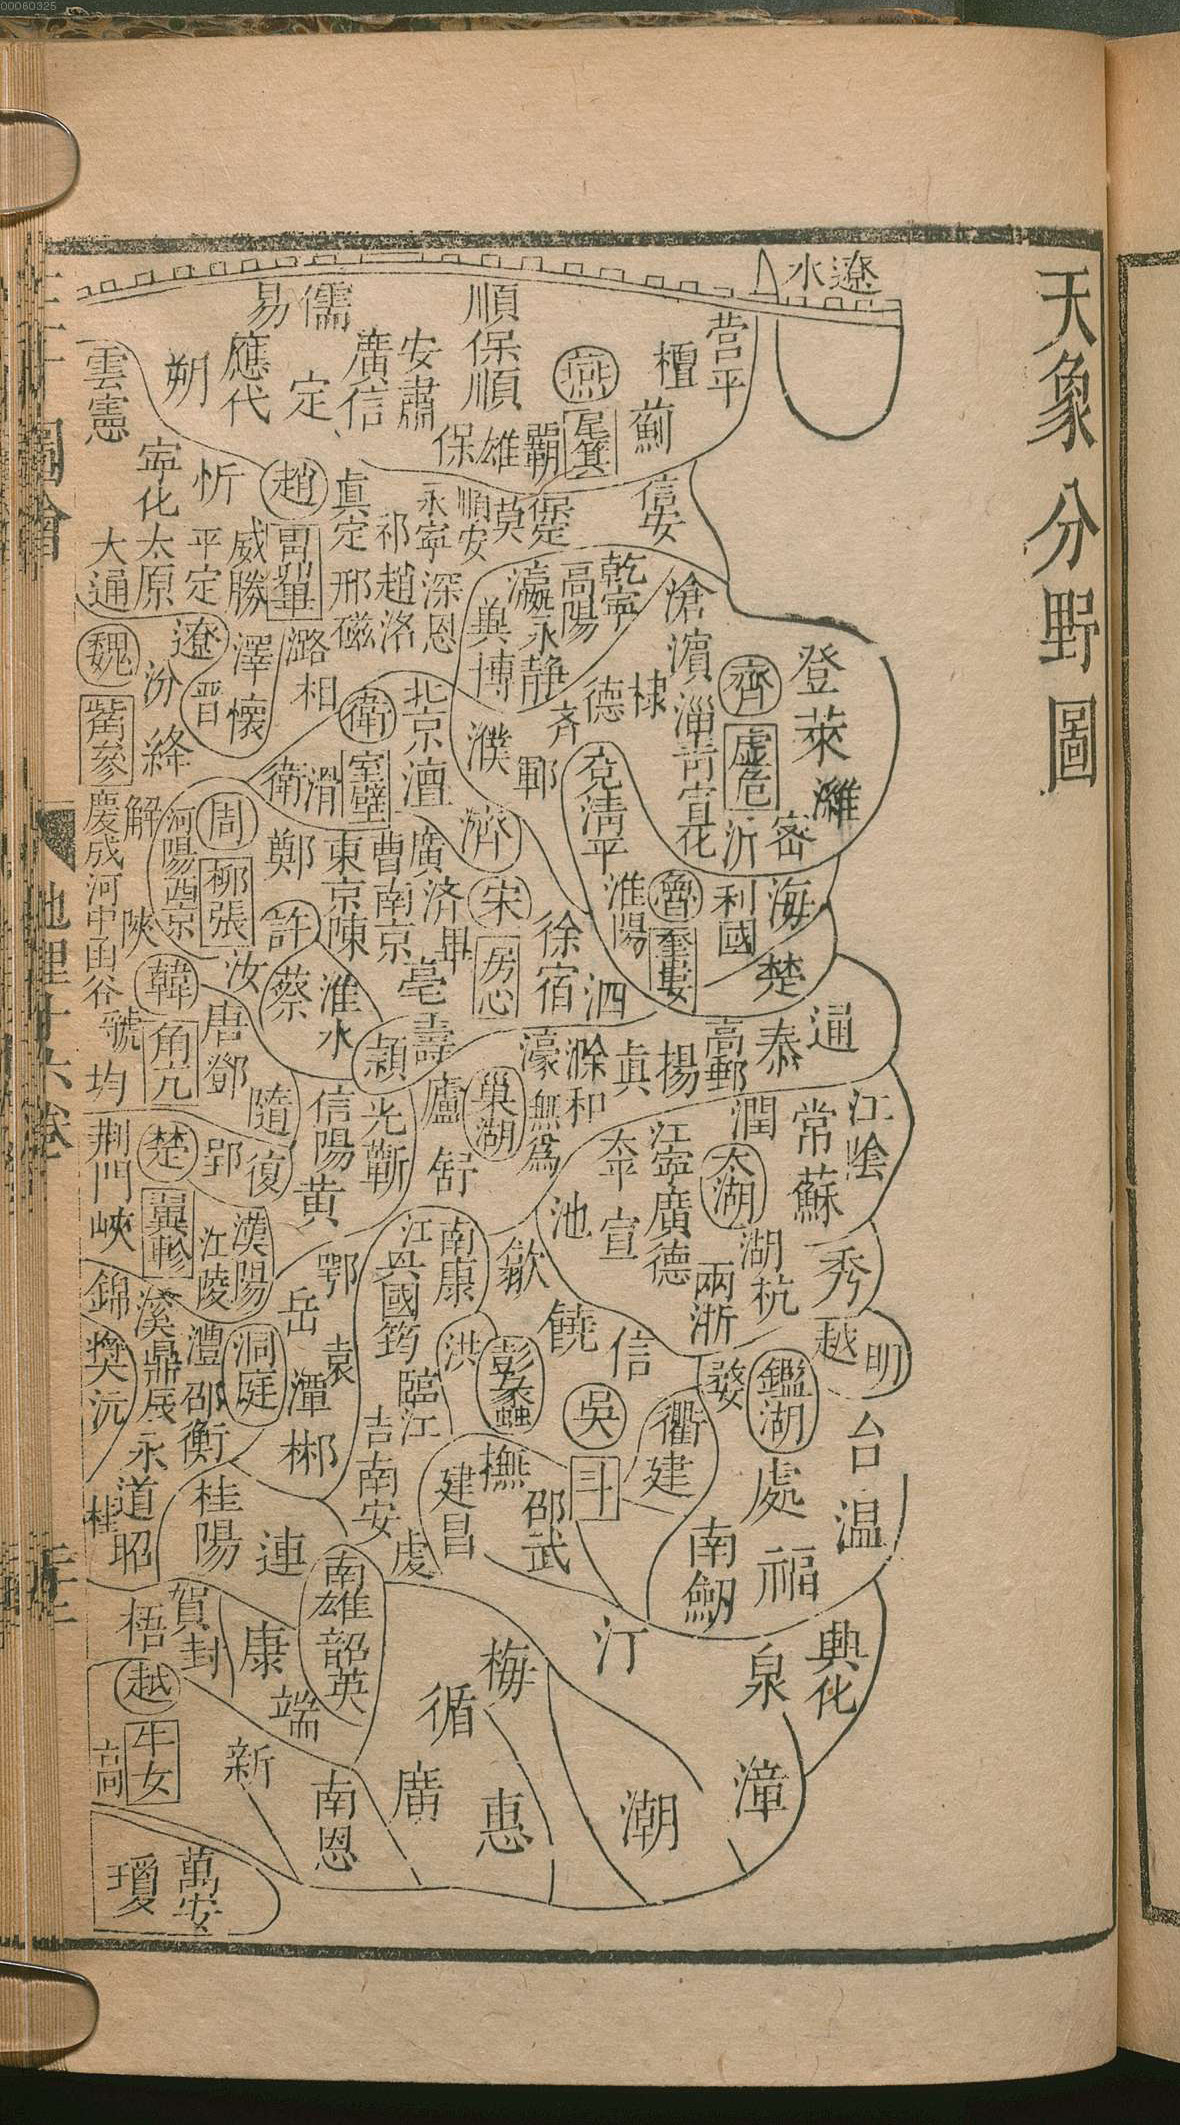 00060325
天象分野圖
遼水
營平
檀
薊
燕
星箕
順保順
霸
雄
保
安肅
廣信
儒
易
定
應代
朔
雲憲
寧化
忻
趙
真定
祁
永寧
順安
莫
保定
信安
大通
太原
平定
威勝
胃昴畢
邢磁
趙洛
深恩
瀛
永靜
高陽
乾寧
滄
濱
棣
德
博
登萊
濰
密
沂
齊
虛危
淄青
魏
觜參
汾
絳
遼
晉
澤
懷
潞
相
衛
室壁
北京
澶
濮
鄆
齐
兗
清平
衛
滑
濟
慶成
河中
函谷
解
陝
虢
均
河陽
西京
周
柳張
鄭
許
汝
東京
陳
曹
南京
廣濟
宋
房心
亳
壽
徐宿
泗
淮陽
魯
奎婁
利國
海
楚
韓
角亢
唐鄧
隨
蔡
淮水
潁
信陽
光蘄
黃
廬
舒
巢湖
無為
濠
滁
和
真
揚
高郵
泰
通
荆門
峽
楚
翼軫
郢
復
江陵
漢陽
鄂
岳
太平
池
宣
江寧
廣德
潤
常
蘇
江陰
太湖
湖
杭
兩浙
秀
越
明
錦
獎
沅
溪
鼎
辰
澧
邵
衡
永
道
昭
桂
洞庭
潭
袁
郴
江
興國
筠
南康
洪
歙
饒
信
臨江
吉
南安
虔
彭蠡
吳
斗
撫
建昌
邵武
衢
婺
建
鑑湖
處
台
溫
南劒
福
桂陽
連
南雄
韶
英
梧
賀
封
康
端
越
牛女
高
新
南恩
循
梅
廣
惠
汀
潮
漳
泉
興化
瓊
萬安
三才圖會
地理十六卷